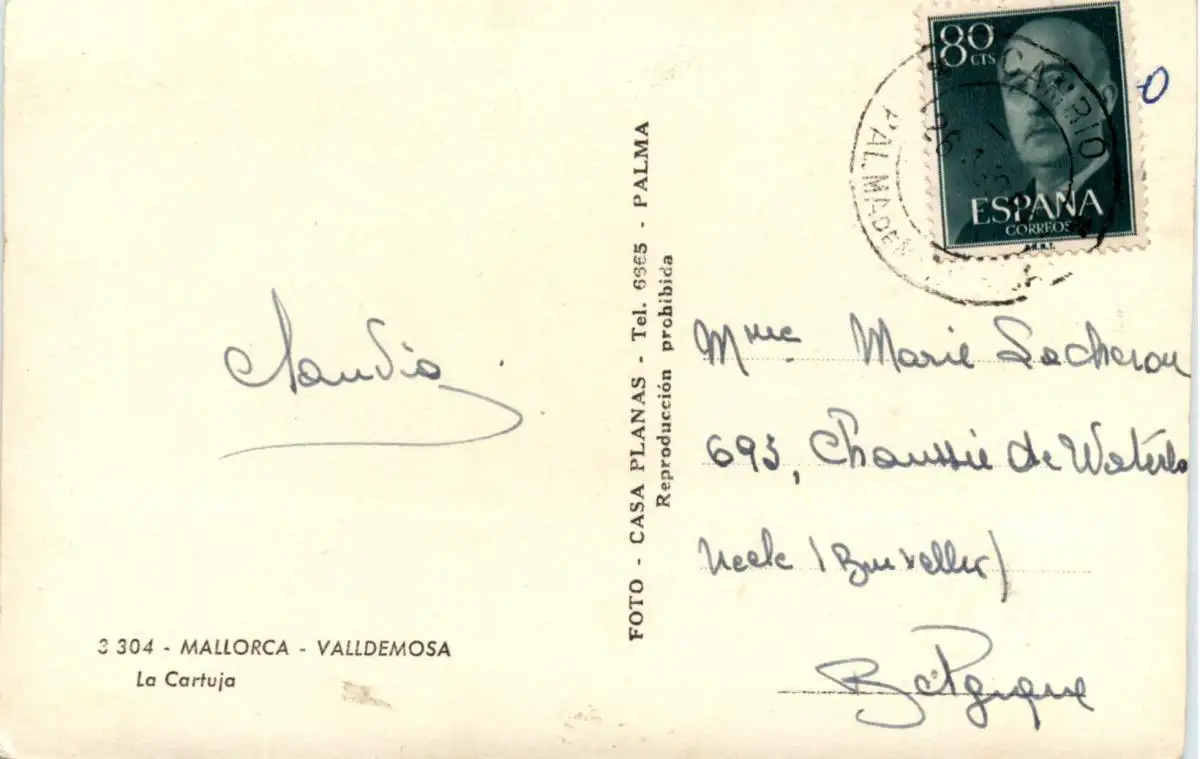 80
CTS
ESPAÑA
CORREOS
CAMBIO
PALMA DE
FOTO - CASA PLANAS - Tel. 6665 - PALMA
Reproducción prohibida
Claudia
Mme Marie Lacheron
693, Chaussée de Waterlo
Uccle (Bruxelles)
Belgique
3 304 - MALLORCA - VALLDEMOSA
La Cartuja